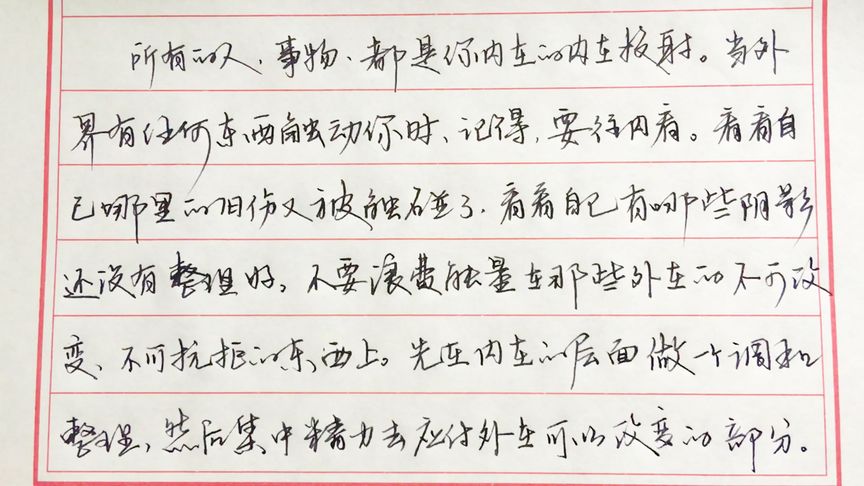 所有的人、事物、都是你内在的内在投射。当外
界有任何东西触动你时、记得,要往内看。看看自
己哪里的旧伤又被触碰了、看看自己有哪些阴影
还没有整理好。不要浪费能量在那些外在的不可改
变、不可抗拒的东西上。先在内在的层面做一个调和
整理,然后集中精力去应付外在可以改变的部分。